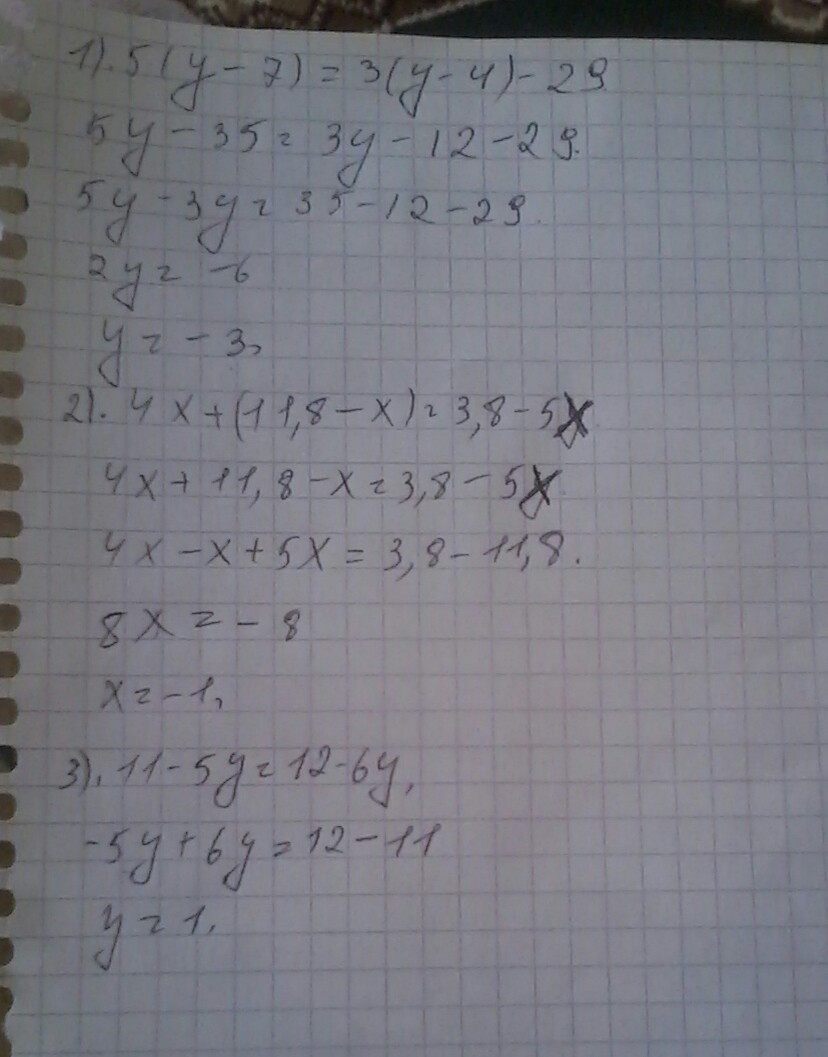 1). 5(y-7)=3(y-4)-29
5y-35=3y-12-29.
5y-3y=35-12-29.
2y=-6
y=-3,
2). 4x+(11,8-x)=3,8-5x
4x+11,8-x=3,8-5x
4x-x+5x=3,8-11,8.
8x=-8
x=-1,
3). 11-5y=12-6y,
-5y+6y=12-11
y=1.